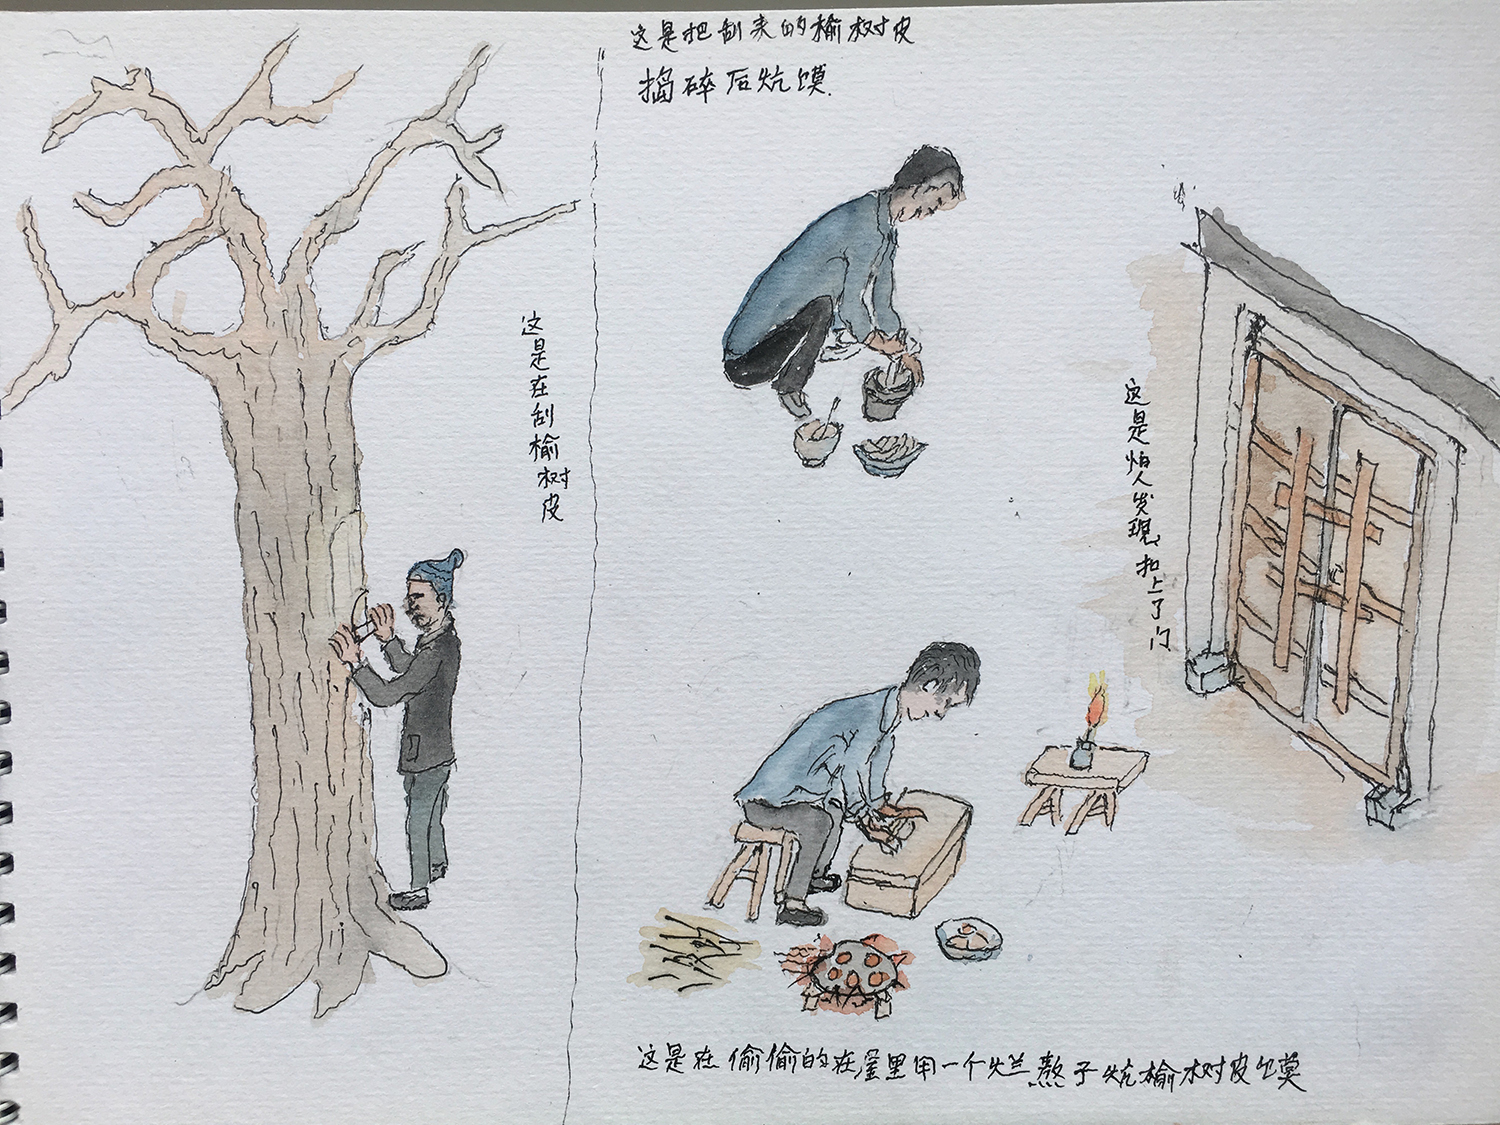 这是在刮榆树皮
这是把刮来的榆树皮
捣碎后炕馍.
这是怕人发现,扣上了门
这是在偷偷的在屋里用一个烂熬子炕榆树皮馍